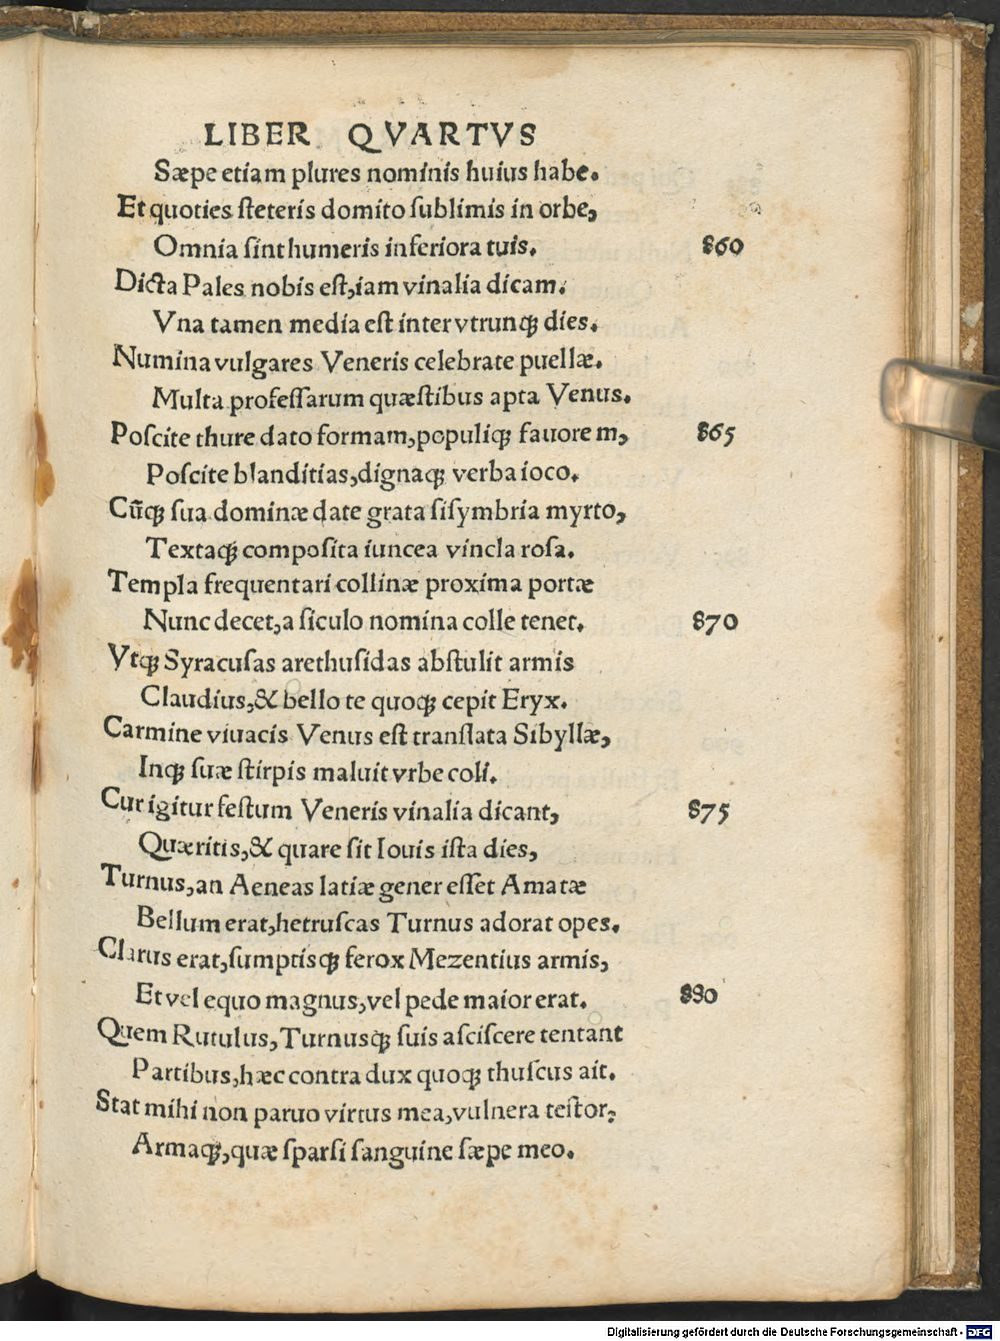 LIBER QVARTVS
Sæpe etiam plures nominis huius habe.
Et quoties ſteteris domito ſublimis in orbe,
Omnia ſint humeris inferiora tuis. 860
Dicta Pales nobis eſt, iam vinalia dicam.
Vna tamen media eſt inter vtrunqꝫ dies.
Numina vulgares Veneris celebrate puellæ.
Multa profeſſarum quæſtibus apta Venus.
Poſcite thure dato formam, populiqꝫ fauorem, 865
Poſcite blanditias, dignaqꝫ verba ioco.
Cūqꝫ ſua dominæ date grata ſiſymbria myrto,
Textaqꝫ compoſita iuncea vincla roſa.
Templa frequentari collinæ proxima portæ
Nunc decet, a ſiculo nomina colle tenet. 870
Vtqꝫ Syracuſas arethuſidas abſtulit armis
Claudius, & bello te quoqꝫ cepit Eryx.
Carmine viuacis Venus eſt tranſlata Sibyllæ,
Inqꝫ ſuæ ſtirpis maluit vrbe coli.
Cur igitur feſtum Veneris vinalia dicant, 875
Quæritis, & quare ſit Iouis iſta dies,
Turnus, an Aeneas latiæ gener eſſet Amatæ
Bellum erat, hetruſcas Turnus adorat opes.
Clarus erat, ſumptisqꝫ ferox Mezentius armis,
Et vel equo magnus, vel pede maior erat. 880
Quem Rutulus, Turnusqꝫ ſuis aſciſcere tentant
Partibus, hæc contra dux quoqꝫ thuſcus ait.
Stat mihi non paruo virtus mea, vulnera teſtor,
Armaqꝫ, quæ ſparſi ſanguine ſæpe meo.
Digitalisierung gefördert durch die Deutsche Forschungsgemeinschaft - DFG